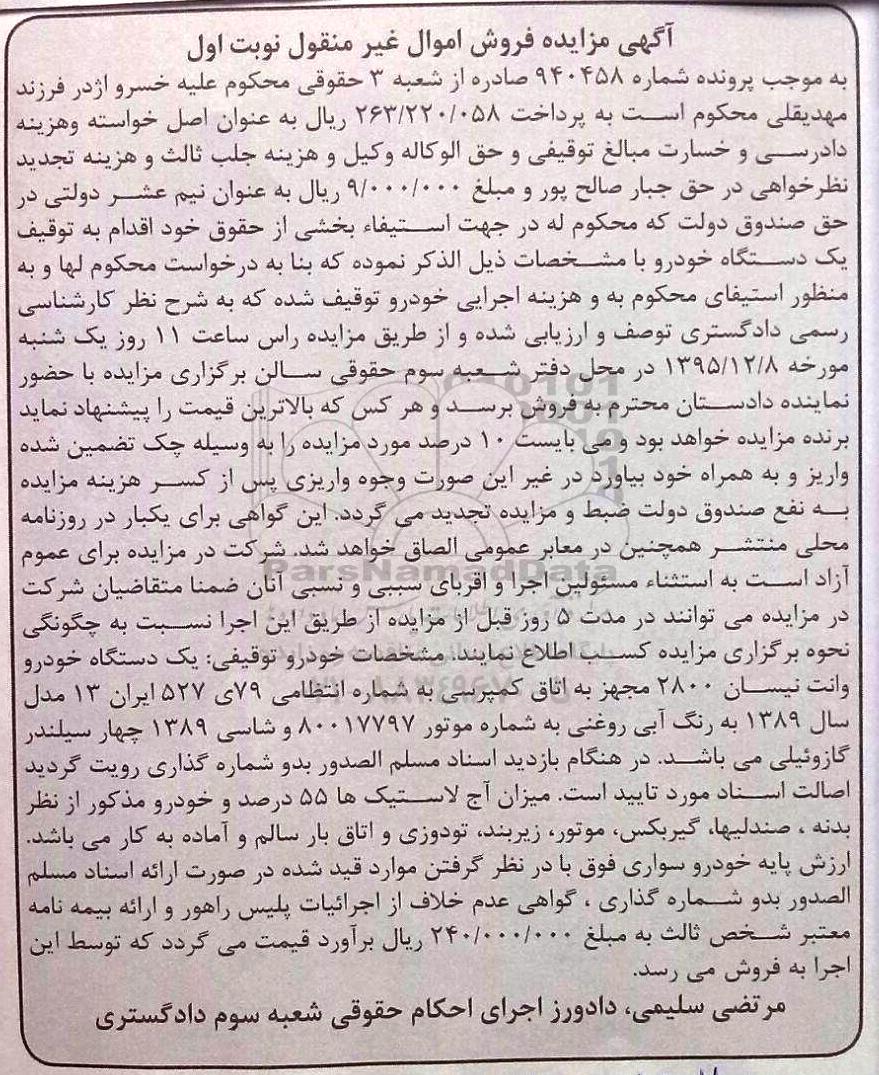 آگهی مزایده فروش اموال غیر منقول نوبت اول
به موجب پرونده شماره ۹۴۰۴۵۸ صادره از شعبه ۳ حقوقی محکوم علیه خسرو اژدر فرزند
مهدیقلی محکوم است به پرداخت ۲۶۳/۲۲۰/۰۵۸ ریال به عنوان اصل خواسته وهزینه
دادرسی و خسارت مبالغ توقیفی و حق الوکاله وکیل و هزینه جلب ثالث و هزینه تجدید
نظرخواهی در حق جبار صالح پور و مبلغ ۹/۰۰۰/۰۰۰ ریال به عنوان نیم عشر دولتی در
حق صندوق دولت که محکوم له در جهت استیفاء بخشی از حقوق خود اقدام به توقیف
یک دستگاه خودرو با مشخصات ذیل الذکر نموده که بنا به درخواست محکوم لها و به
منظور استیفای محکوم به و هزینه اجرایی خودرو توقیف شده که به شرح نظر کارشناسی
رسمی دادگستری توصف و ارزیابی شده و از طریق مزایده راس ساعت ۱۱ روز یک شنبه
مورخه ۱۳۹۵/۱۲/۸ در محل دفتر شعبه سوم حقوقی سالن برگزاری مزایده با حضور
نماینده دادستان محترم به فروش برسد و هر کس که بالاترین قیمت را پیشنهاد نماید
برنده مزایده خواهد بود و می بایست ۱۰ درصد مورد مزایده را به وسیله چک تضمین شده
واریز و به همراه خود بیاورد در غیر این صورت وجوه واریزی پس از کسر هزینه مزایده
به نفع صندوق دولت ضبط و مزایده تجدید می گردد. این گواهی برای یکبار در روزنامه
محلی منتشر همچنین در معابر عمومی الصاق خواهد شد. شرکت در مزایده برای عموم
آزاد است به استثناء مسئولین اجرا و اقربای سببی و نسبی آنان ضمنا متقاضیان شرکت
در مزایده می توانند در مدت ۵ روز قبل از مزایده از طریق این اجرا نسبت به چگونگی
نحوه برگزاری مزایده کسب اطلاع نمایند. مشخصات خودرو توقیفی: یک دستگاه خودرو
وانت نیسان ۲۸۰۰ مجهز به اتاق کمپرسی به شماره انتظامی ۷۹ی ۵۲۷ ایران ۱۳ مدل
سال ۱۳۸۹ به رنگ آبی روغنی به شماره موتور ۸۰۰۱۷۷۹۷ و شاسی ۱۳۸۹ چهار سیلندر
گازوئیلی می باشد. در هنگام بازدید اسناد مسلم الصدور بدو شماره گذاری رویت گردید
اصالت اسناد مورد تایید است. میزان آج لاستیک ها ۵۵ درصد و خودرو مذکور از نظر
بدنه ، صندلیها، گیربکس، موتور، زیربند، تودوزی و اتاق بار سالم و آماده به کار می باشد.
ارزش پایه خودرو سواری فوق با در نظر گرفتن موارد قید شده در صورت ارائه اسناد مسلم
الصدور بدو شماره گذاری ، گواهی عدم خلاف از اجرائیات پلیس راهور و ارائه بیمه نامه
معتبر شخص ثالث به مبلغ ۲۴۰/۰۰۰/۰۰۰ ریال برآورد قیمت می گردد که توسط این
اجرا به فروش می رسد.
مرتضی سلیمی، دادورز اجرای احکام حقوقی شعبه سوم دادگستری
ParsNamadData